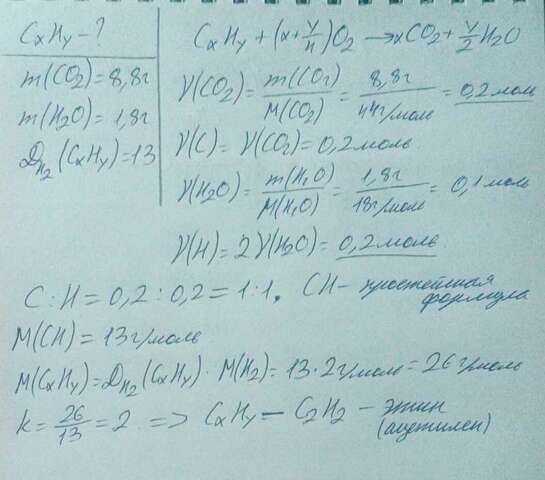 CxHy - ?
m(CO2) = 8,8г
m(H2O) = 1,8г
DH2(CxHy) = 13
CxHy + (x + y/4)O2 → xCO2 + y/2 H2O
γ(CO2) = m(CO2)/M(CO2) = 8,8г/44г/моль = 0,2 моль
γ(C) = γ(CO2) = 0,2 моль
γ(H2O) = m(H2O)/M(H2O) = 1,8г/18г/моль = 0,1 моль
γ(H) = 2γ(H2O) = 0,2 моль
C : H = 0,2 : 0,2 = 1:1. CH - простейшая
формула
M(CH) = 13г/моль
M(CxHy) = DH2(CxHy) · M(H2) = 13 · 2г/моль = 26г/моль
k = 26/13 = 2 => CxHy - C2H2 - этин
(ацетилен)